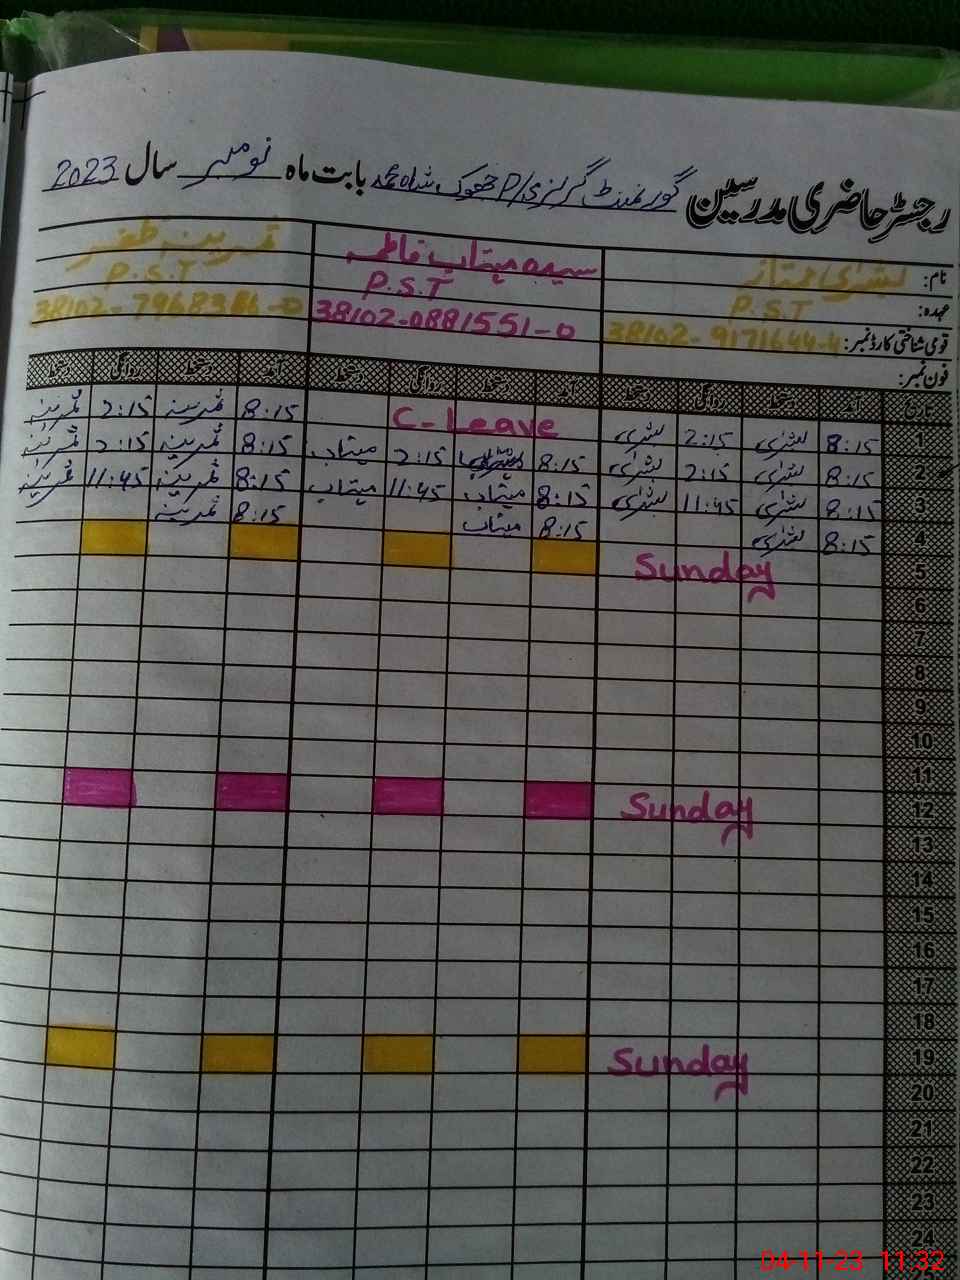 رجسٹر حاضری مدرسین گورنمنٹ گرلز P/ جھوک شاہ محمد بابت ماہ نومبر سال 2023
نام: بشریٰ ممتاز سیدہ مہتاب فاطمہ ثمرینہ ظفر
عہدہ: P.S.T P.S.T P.S.T
قومی شناختی کارڈ نمبر: 38102-9171644-4 38102-0881551-0
فون نمبر:
تاریخ آمد دستخط روانگی دستخط آمد دستخط روانگی دستخط آمد دستخط روانگی دستخط
1 8:15 بشریٰ 2:15 بشریٰ C-Leave 8:15 ثمرینہ 2:15 ثمرینہ
2 8:15 بشریٰ 2:15 بشریٰ 8:15 مہتاب 2:15 مہتاب 8:15 ثمرینہ 2:15 ثمرینہ
3 8:15 بشریٰ 11:45 بشریٰ 8:15 مہتاب 11:45 مہتاب 8:15 ثمرینہ 11:45 ثمرینہ
4 8:15 بشریٰ 8:15 مہتاب 8:15 ثمرینہ
5 Sunday
6
7
8
9
10
11
12 Sunday
13
14
15
16
17
18
19 Sunday
20
21
22
23
24
04-11-23 11:32